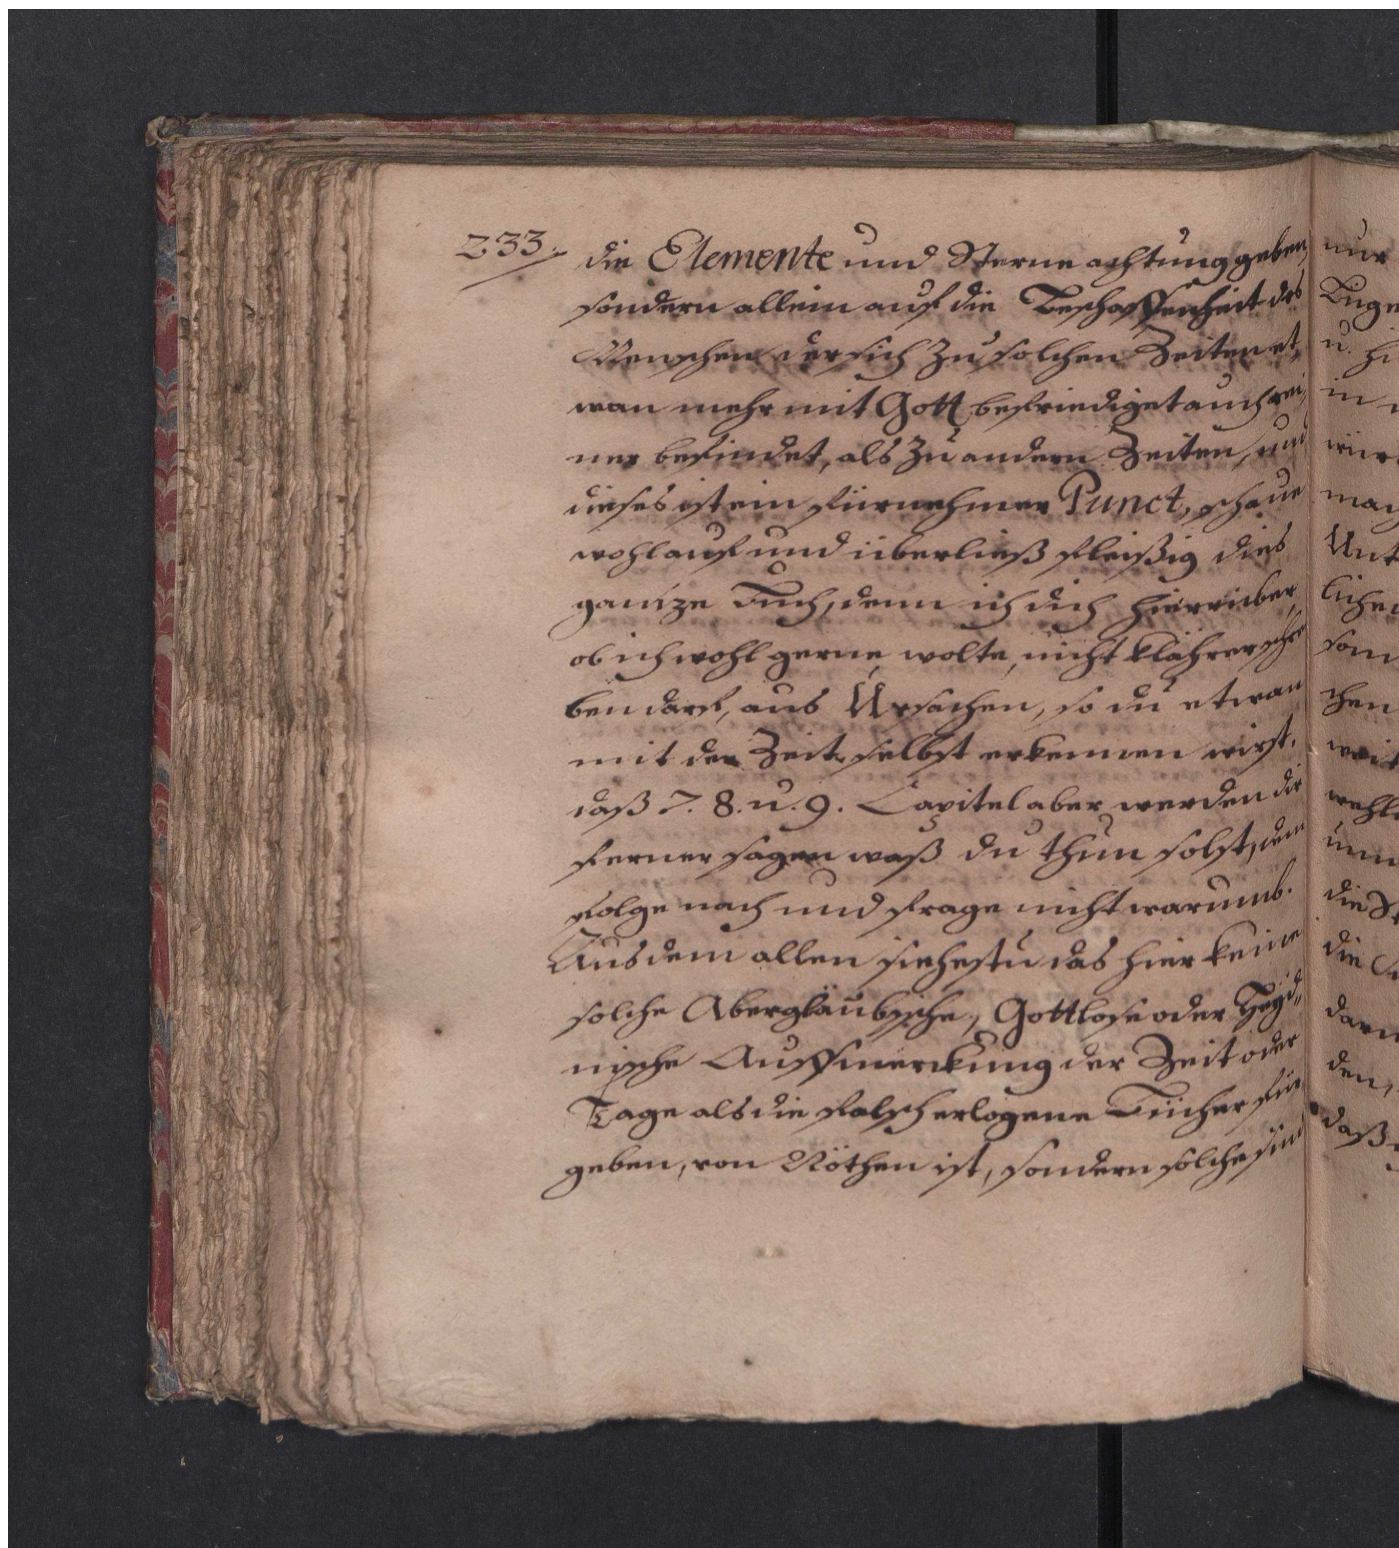 233.
die Elemente und Sterne achtung geben,
sondern allein auf die Beschaffenheit des
Menschen der sich zu solchen Zeiten et,
wan mehr mit Gott befriediget auch rei,
ner befindet, als zu andern Zeiten, und
dieses ist ein fürnehmer Punct, schaue
wohl auf und überließ fleißig dies
gantze Buch, denn ich dich hierrüber,
ob ich wohl gerne wolte, nicht klährer schrei
ben darf, aus Ursachen, so du etwan
mit der Zeit selbst erkennen wirst.
daß 7. 8. u. 9. Capitel aber werden dir
ferner sagen waß du thun solst, dem
folge nach und frage nicht warumb.
Aus dem allen siehestu das hier keine
solche Abergläubische, Gottlose oder Heyd,
nische Auffmerckung der Zeit oder
Tage als die falsch erlogene Bücher für
geben, von Nöthen ist, sondern solche sind
nur
Tuge
u.
in
wür
mag
Unt
liche
son
chen
weit
wohl
die
die
daru
den,
daß